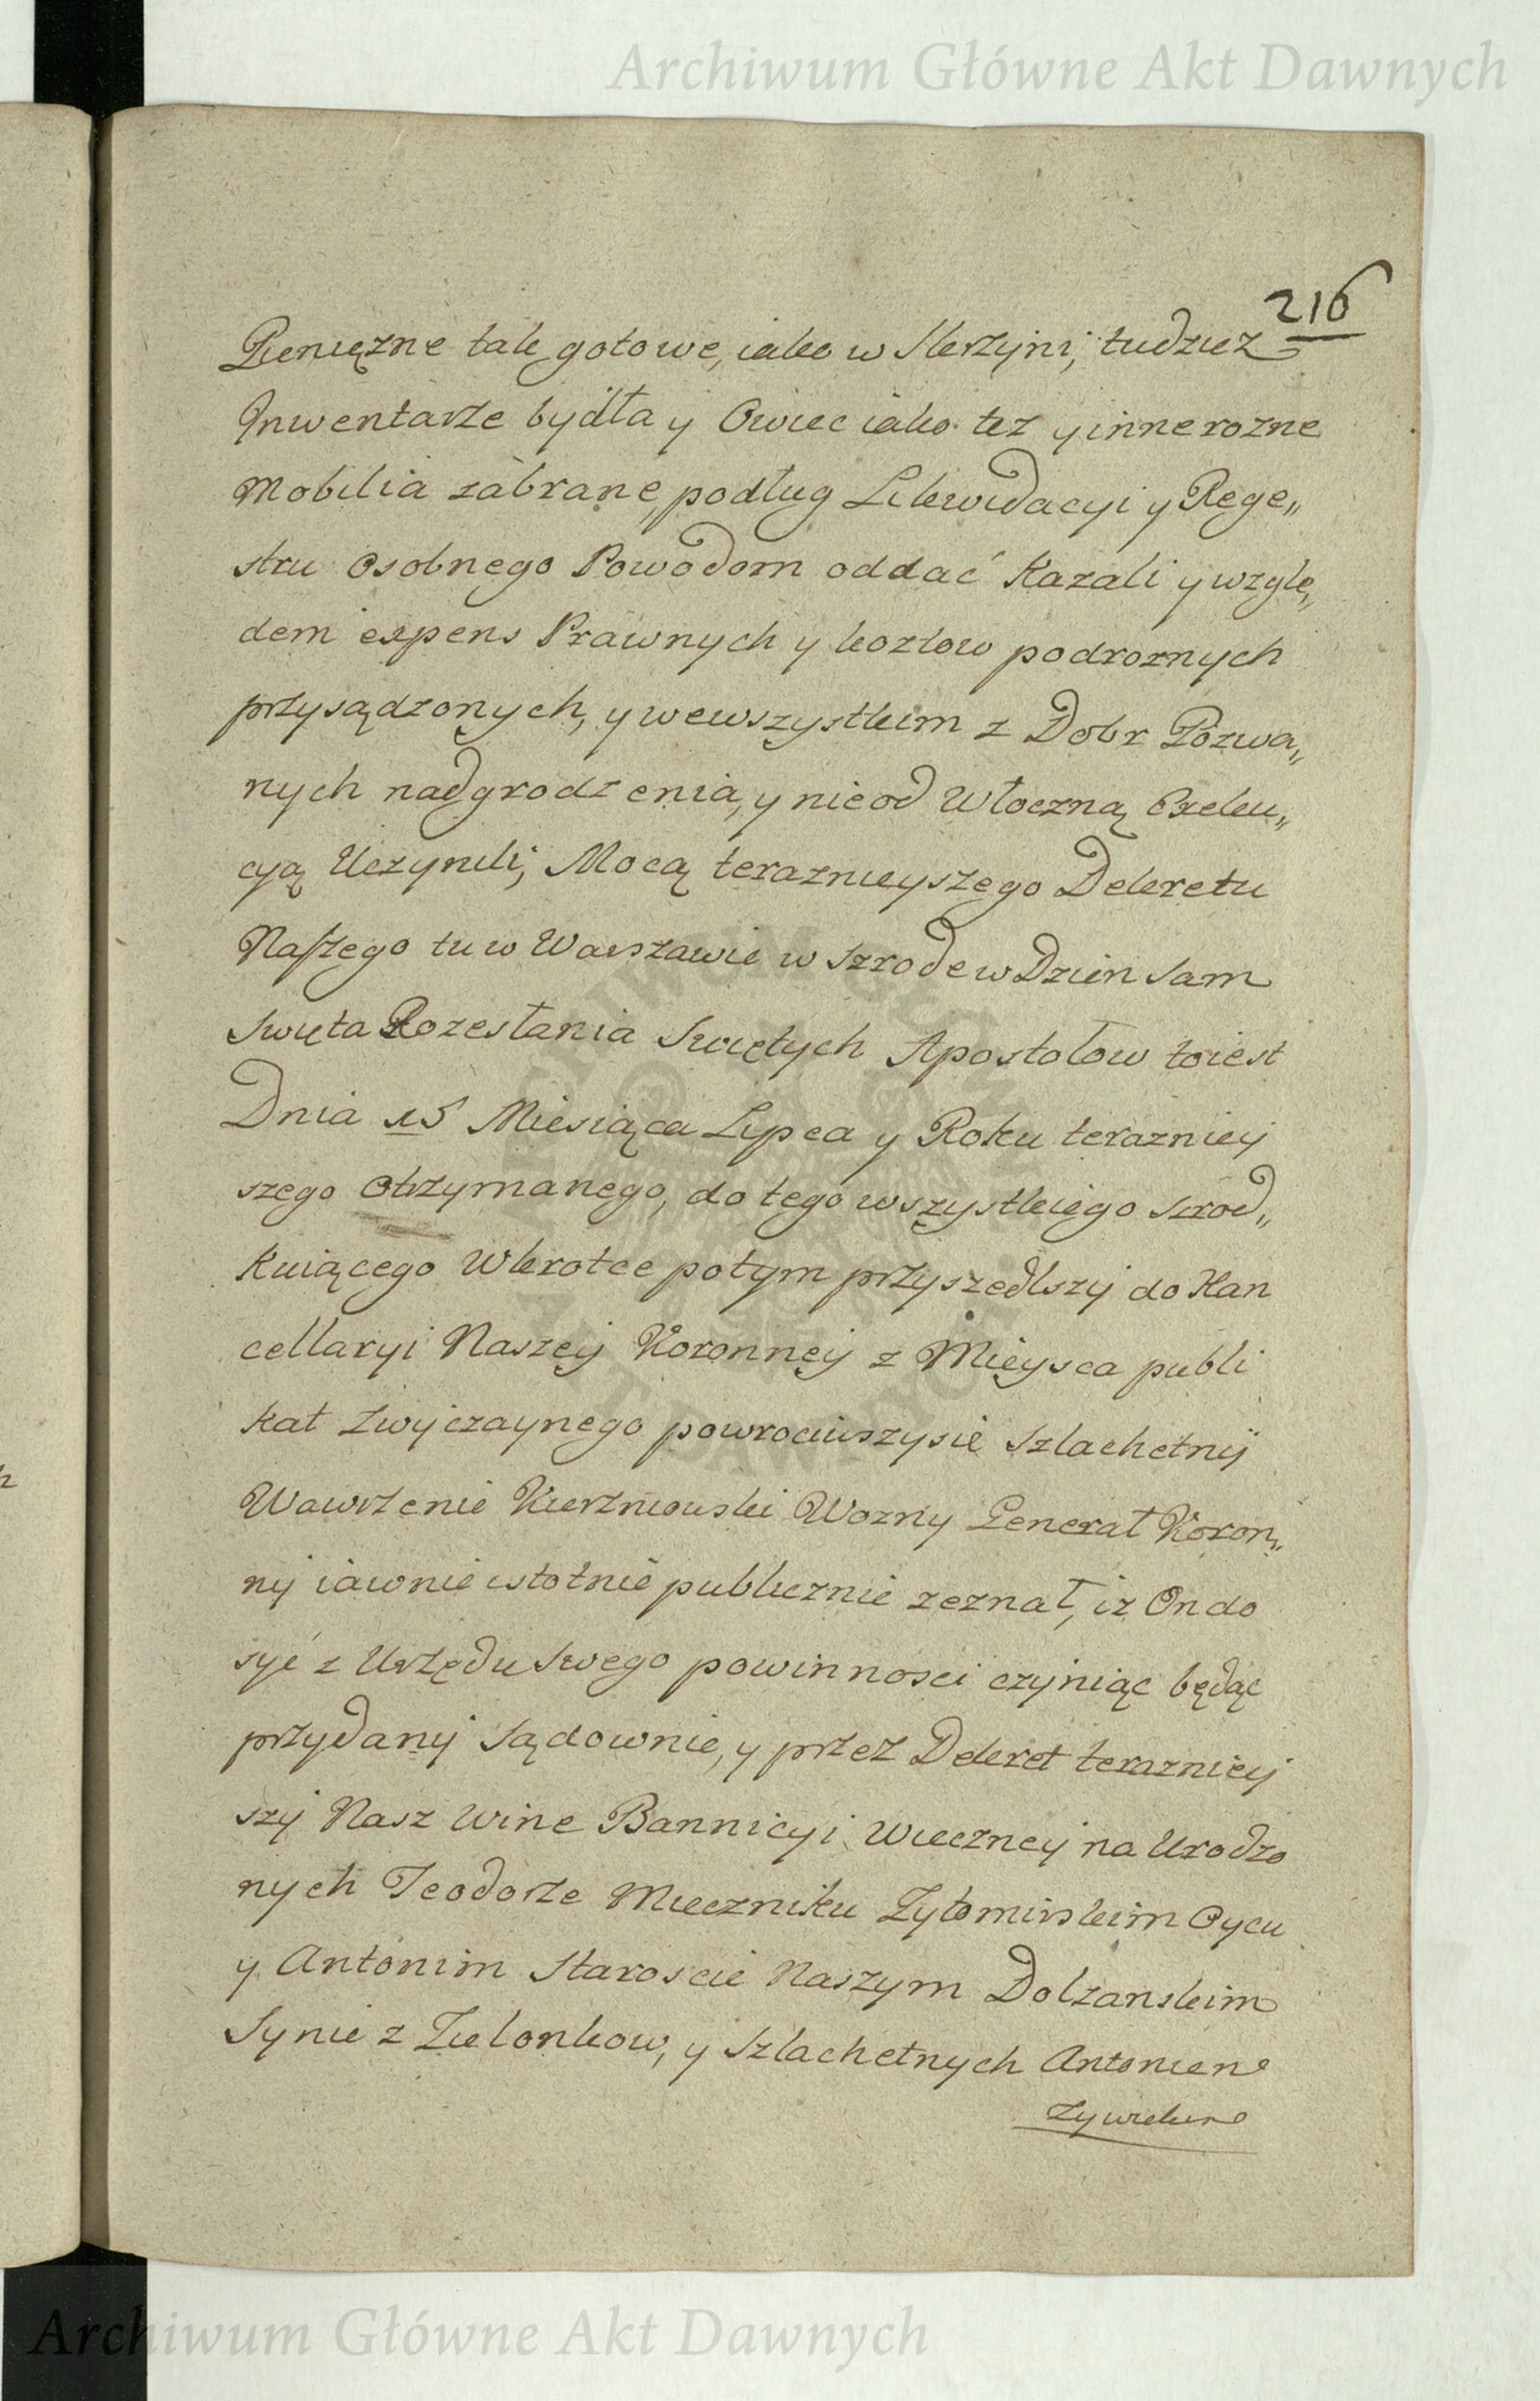 Archiwum Główne Akt Dawnych
216
Pieniężne tak gotowe, iako w Skrzyni, tudziez
Inwentarze bydła y Owiec iako tez y inne rozne
Mobilia zabrane, podług Likwidacyi y Rege„
stru osobnego Powodom oddać Kazali y wzglę„
dem expens Prawnych y kosztow podroznych
przysądzonych, y wewszystkim z Dobr Pozwa„
nych nadgrodzenia, y nieod Włoczną Exeku„
cyą Uczynili, Mocą teraznieyszego Dekretu
Naszego tu w Warszawie w Szrode w Dzien Sam
Swięta Rozesłania Swiętych Apostołow toiest
Dnia 15 Miesiąca Lipca y Roku terazniey
szego otrzymanego, do tego wszystkiego scrod„
kuiącego Wkrotce potym przyszedłszy do Kan
cellaryi Naszey Koronney z Mieysca publi
kat Zwyczaynego powrociwszysie Szlachetny
Wawrzenie Kierzniowski Wozny Generał Koron„
ny iawnie istotnie publicznie zeznał, iz On do
syć z Urzędu Swego powinnosci czyniąc będąc
przydany Sądownie, y przez Dekret terazniey
szy Nasz Wine Bannicyi Wieczney na Urodzo
nych Teodorze Mieczniku Zytomirskim Oycu
y Antonim Staroscie Naszym Dolzanskim
Synie z Zielonkow, y Szlachetnych Antonien
Archiwum Główne Akt Dawnych